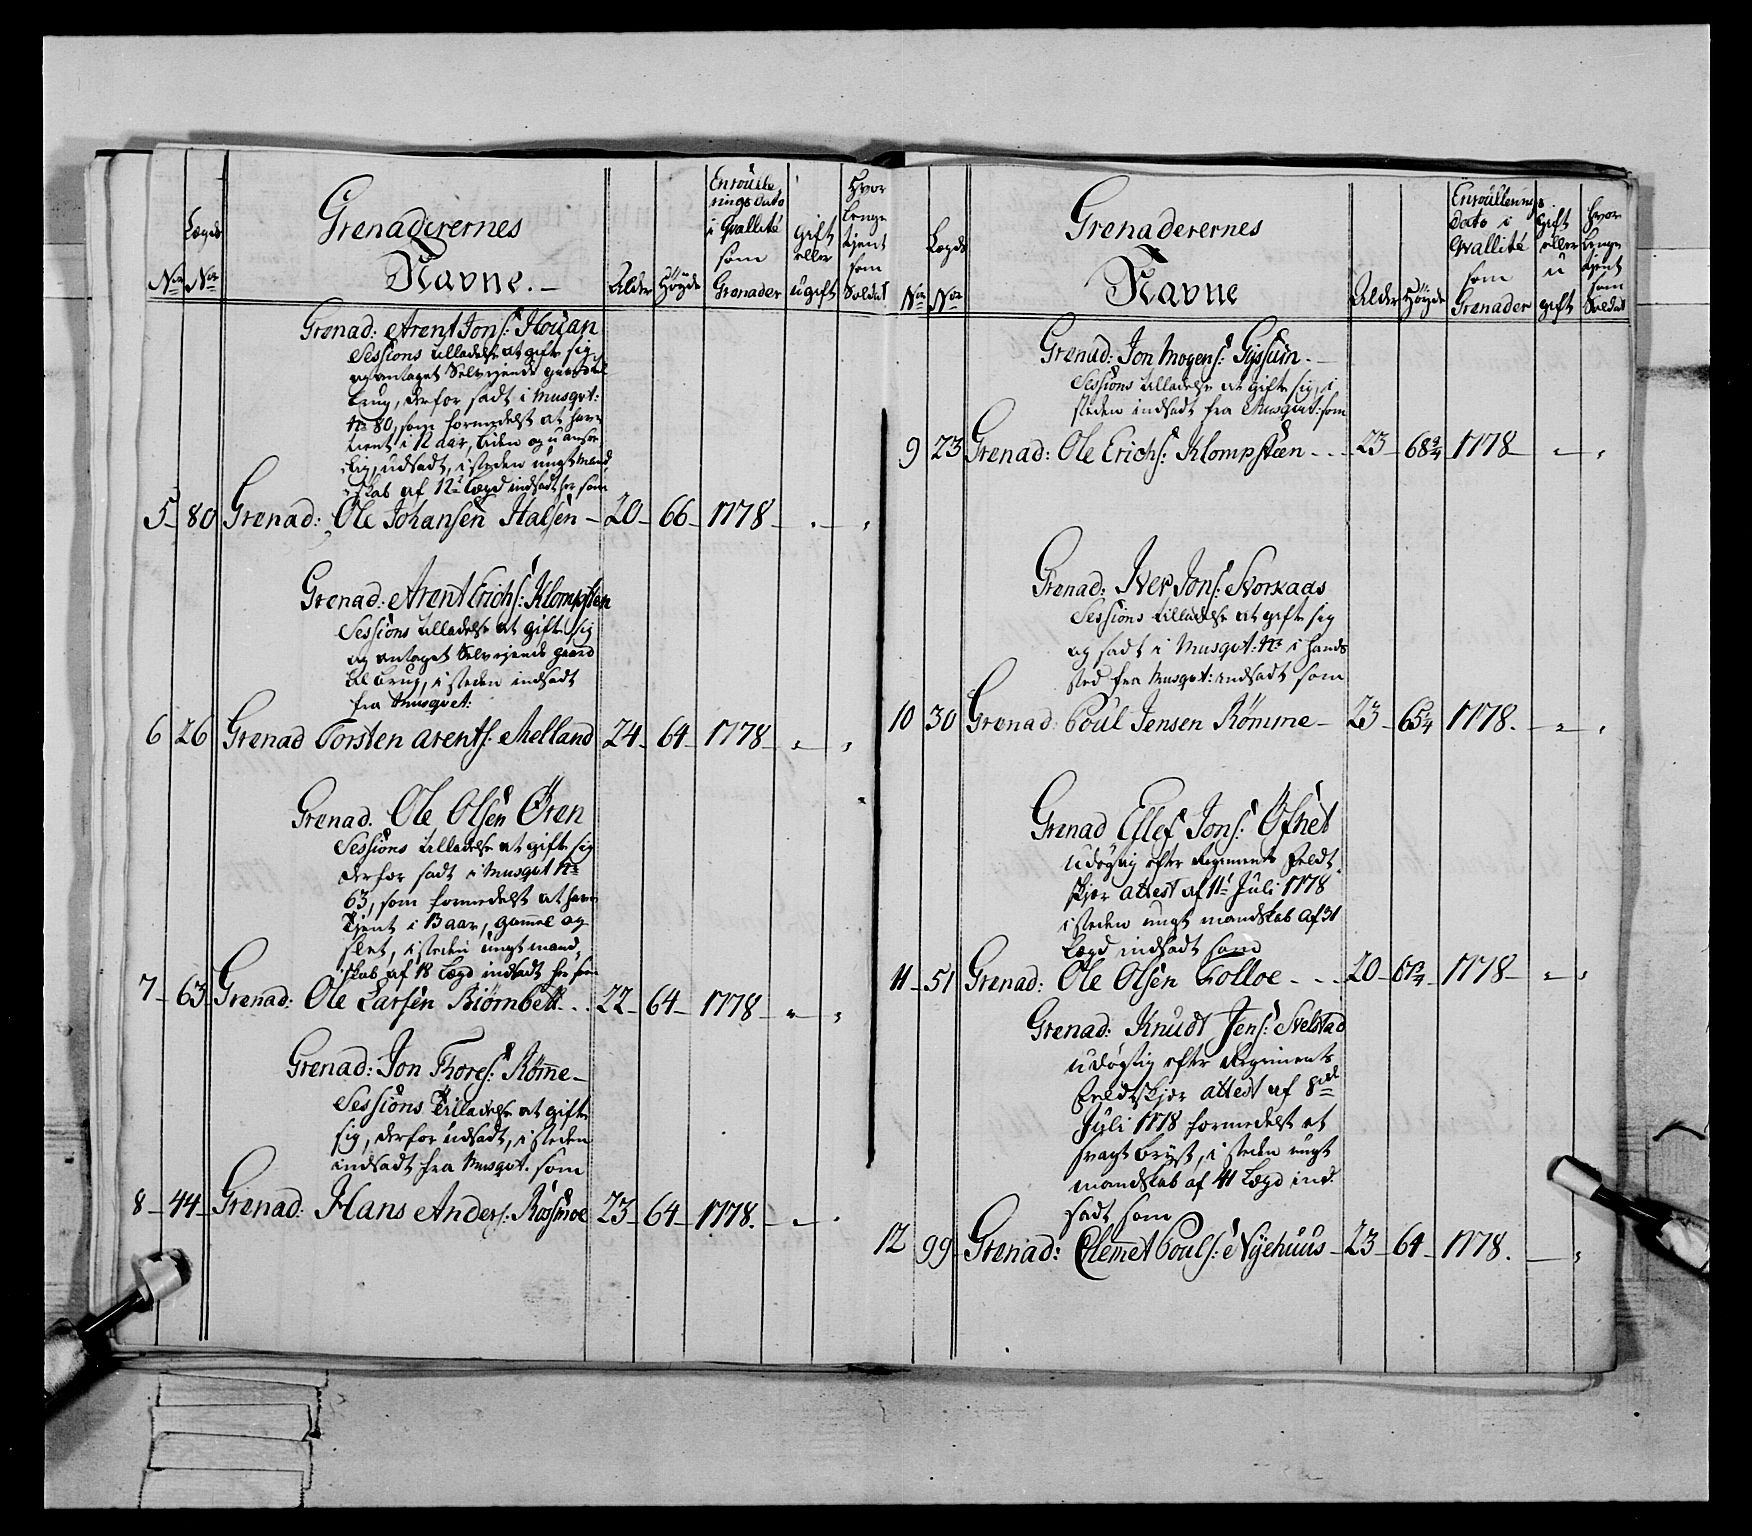 Nr
Lægds Nr
Grenaderernes
Navne. –
Alder
Höyde
Enroulle
rings dato
i Qvallité
som
Grenader
gift
eller
ugift
Hvor
lenge
tjent
som
Soldat
Grenad: Arent Jons: Houan
Sessions tilladelse at gifte sig
og antaget Selveyende gaard til
brug, derfor sadt i Musqvt:
No 80, som formedelst at have
tient i 12 aar, liden og uanse-
lig, udsadt, i steden ungt Mand
skab af 12te Lægd indsadt her som
5 – 80 Grenad: Ole Johansen Halsen – 20 – 66 – 1778 – . – "
Grenad: Arent Erichs: Klompsten
Sessions tilladelse at gifte sig
og antaget Selveyende gaard
til brug, i steden indsadt
fra Musqvet:
6 26 Grenad Torsten Arents: Melland 24 – 64 – 1778 – " – "
Grenad. Ole Olsen Øren
Sessions tilladelse at gifte sig
derfor sadt i Musqvt No
63, som formedelst at have
Tjent i 13 aar, gammel og
slet, i steden ungt mand,
skab af 18 Lægd indsadt her som
7 – 63 Grenad: Ole Larsen Biörnbek . . 22 – 64 – 1778 – " – "
Grenad: Jon Thores: Römme –
Sessions Tilladelse at gifte
sig, derfor udsadt, i steden
indsadt fra Musqvt. som
8 – 44 – Grenad: Hans Anders: Røsmoe 23 – 64 – 1778. – " – "
Nr
Lægds Nr
Grenaderernes
Navne
Alder
Höyde
Enroullerings
dato i
Qvallité
som
Grenader
Gift
eller
u
gift
Hvor
Lenge
tjent
som
Soldat
Grenad: Jon Mogens: Gissuin. –
Sessions tilladelse at gifte sig, i
steden indsadt fra Musqvt: som
9 23 Grenad: Ole Erichs: Klompsteen - - - 23 – 68 3/4 1778 – " – "
Grenad: Iver Jons: Storkaas
Sessions tilladelse at gifte sig
og sadt i Musqvt: No i hands
sted fra Musqvt: indsadt som
10 30 Grenad: Poul Jensen Römme – 23 – 65 1/4 1778. – " – "
Grenad Ellef Jons: Öfstet
udögtig efter Regiments feldt
skjer attest af 11t Juli 1778
i steden ungt mandskab af 31
Lægd indsadt som
11 – 51 Grenad: Ole Olsen Folloe - - - 20 – 67 1/4 – 1778 – " – "
Grenad: Knudt Jens: Svelstad
udögtig efter Regiments
feldtskjer attest af 8de
Juli 1778 formedelst et
svagt bryst, i steden ungt
mandskab af 41 Lægd ind
sadt som
12 99 Grenad: Clemmet Pouls: Nyehuus – 23 – 64 – 1778. – "